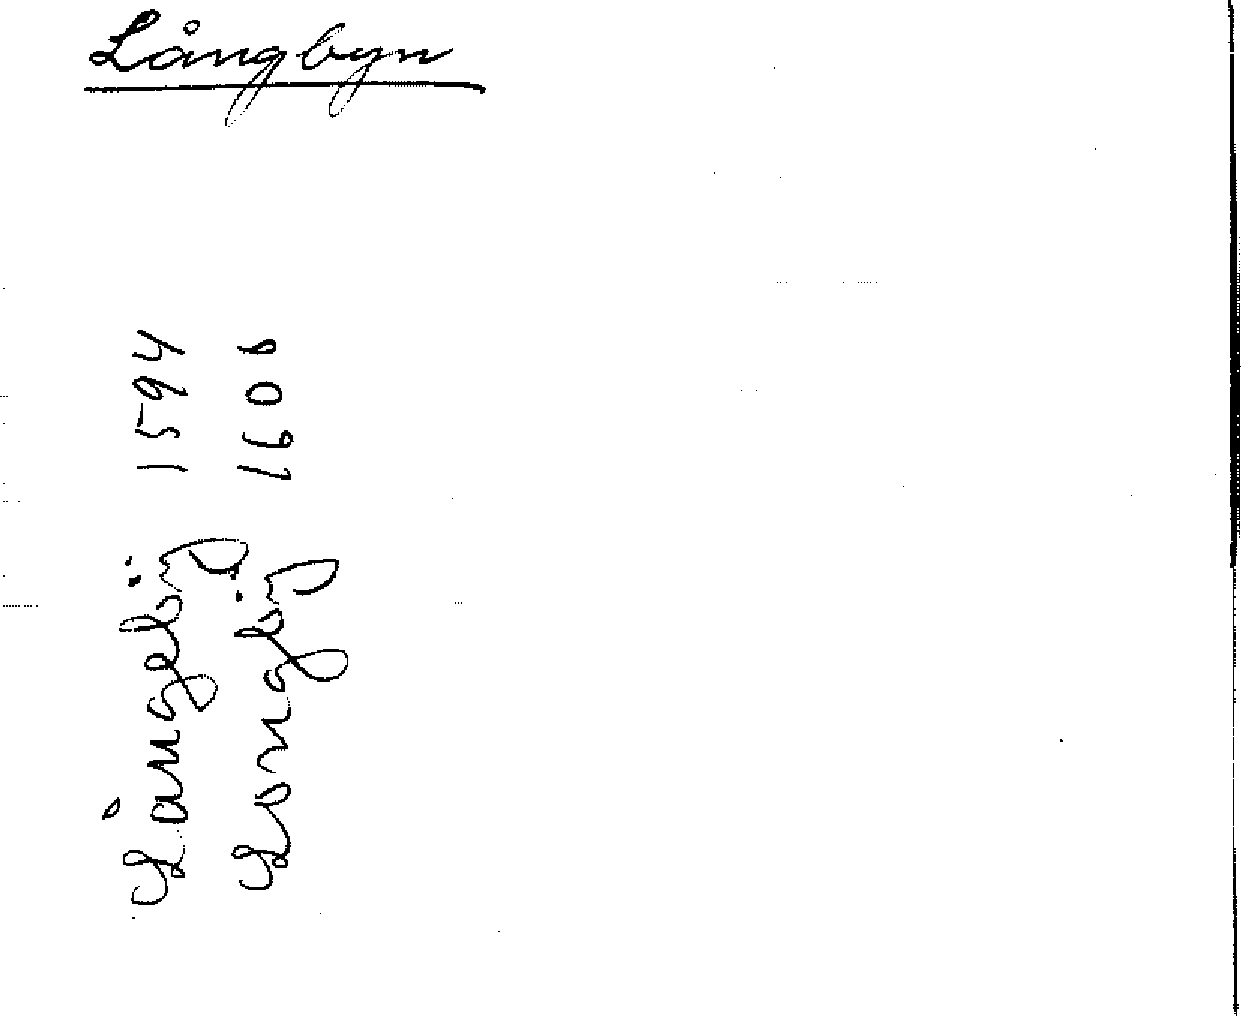 Långbyn
Långebÿ 1594
Longbÿ 1608